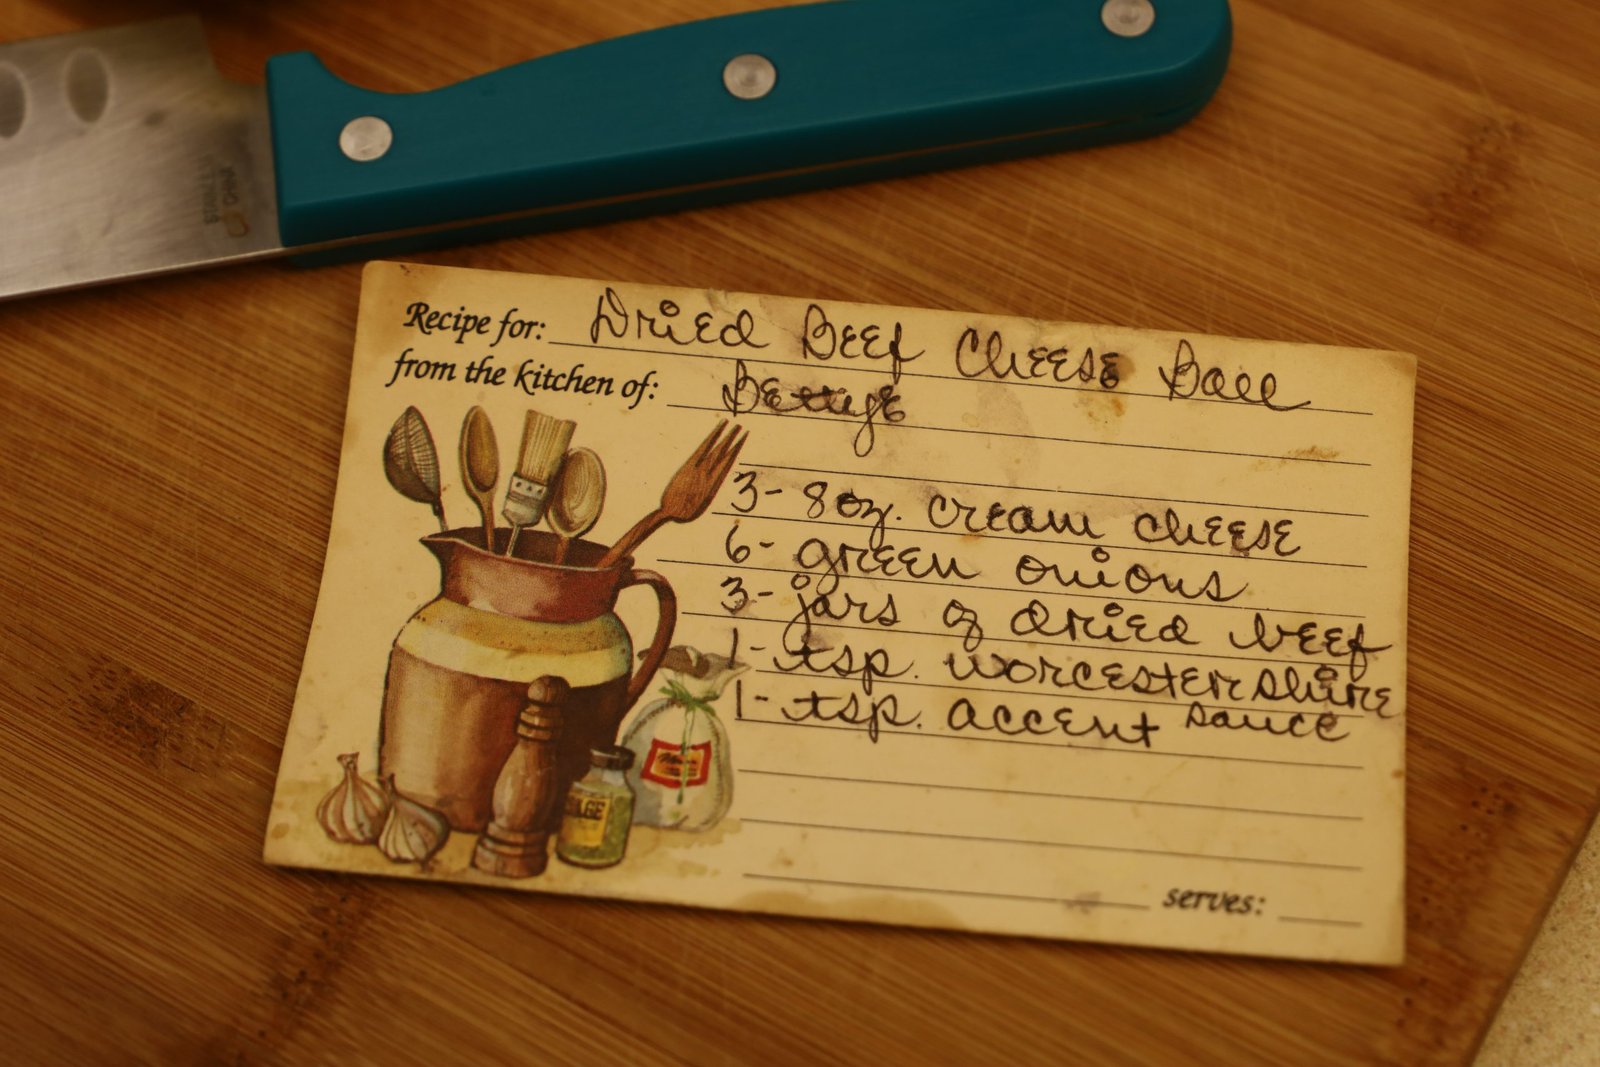 Recipe for: Dried Beef Cheese Ball
from the kitchen of: Bettye
3- 8oz. cream cheese
6- green onions
3- jars of dried beef
1- tsp. worcestershire
1- tsp. accent sauce
serves: